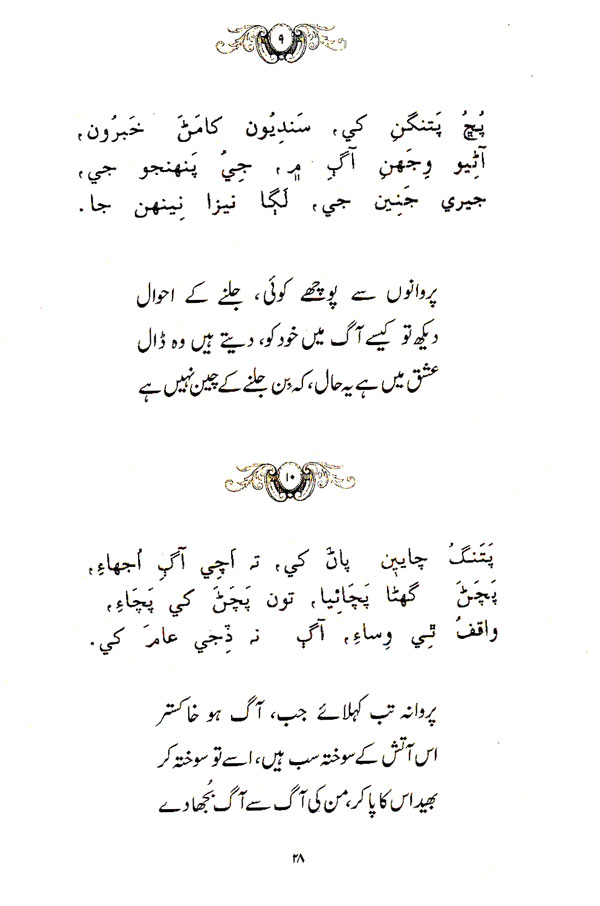 ۹
پُڇُ پَتنگنِ کي، سَندِيُون کامَڻَ خَبرُون،
آڻِيو وِجَهنِ آڳِ ۾، جِيُ پَنهنجو جي،
جيري جَنِين جي، لَڳا نيزا نِينهن جا.
پروانوں سے پوچھے کوئی، جلنے کے احوال
دیکھ تو کیسے آگ میں خود کو، دیتے ہیں وہ ڈال
عشق میں ہے یہ حال، کہ بِن جلنے کے چین نہیں ہے
۱۰
پَتَنگُ چايين پاڻَ کي، تہ اَچِي آڳِ اُجهاءِ،
پَچَڻَ گهڻا پَچَائِيا، تون پَچَڻَ کي پَچَاءِ،
واقفُ ٿِي وِساءِ، آڳِ نہ ڏِجي عامَ کي.
پروانہ تب کہلائے جب، آگ ہو خاکستر
اس آتش کے سوختہ سب ہیں، اسے تو سوختہ کر
بھید اس کا پا کر، من کی آگ سے آگ بُجھا دے
۲۸